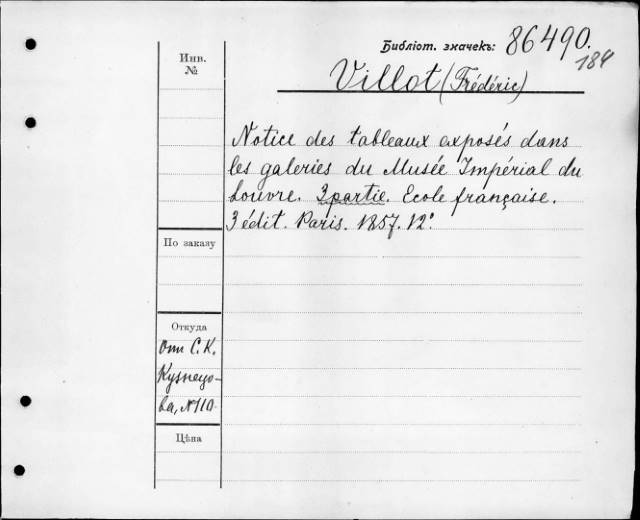 Библіот. значекъ: 86490.
184
Инв.
№
Villot (Frédéric)
Notice des tableaux exposés dans
les galeries du Musée Impérial du
Louvre. 3 partie. Ecole française.
3 édit. Paris. 1857. 12°.
По заказу
Откуда
От С. К.
Кузнецо-
ва, №110.
Цѣна